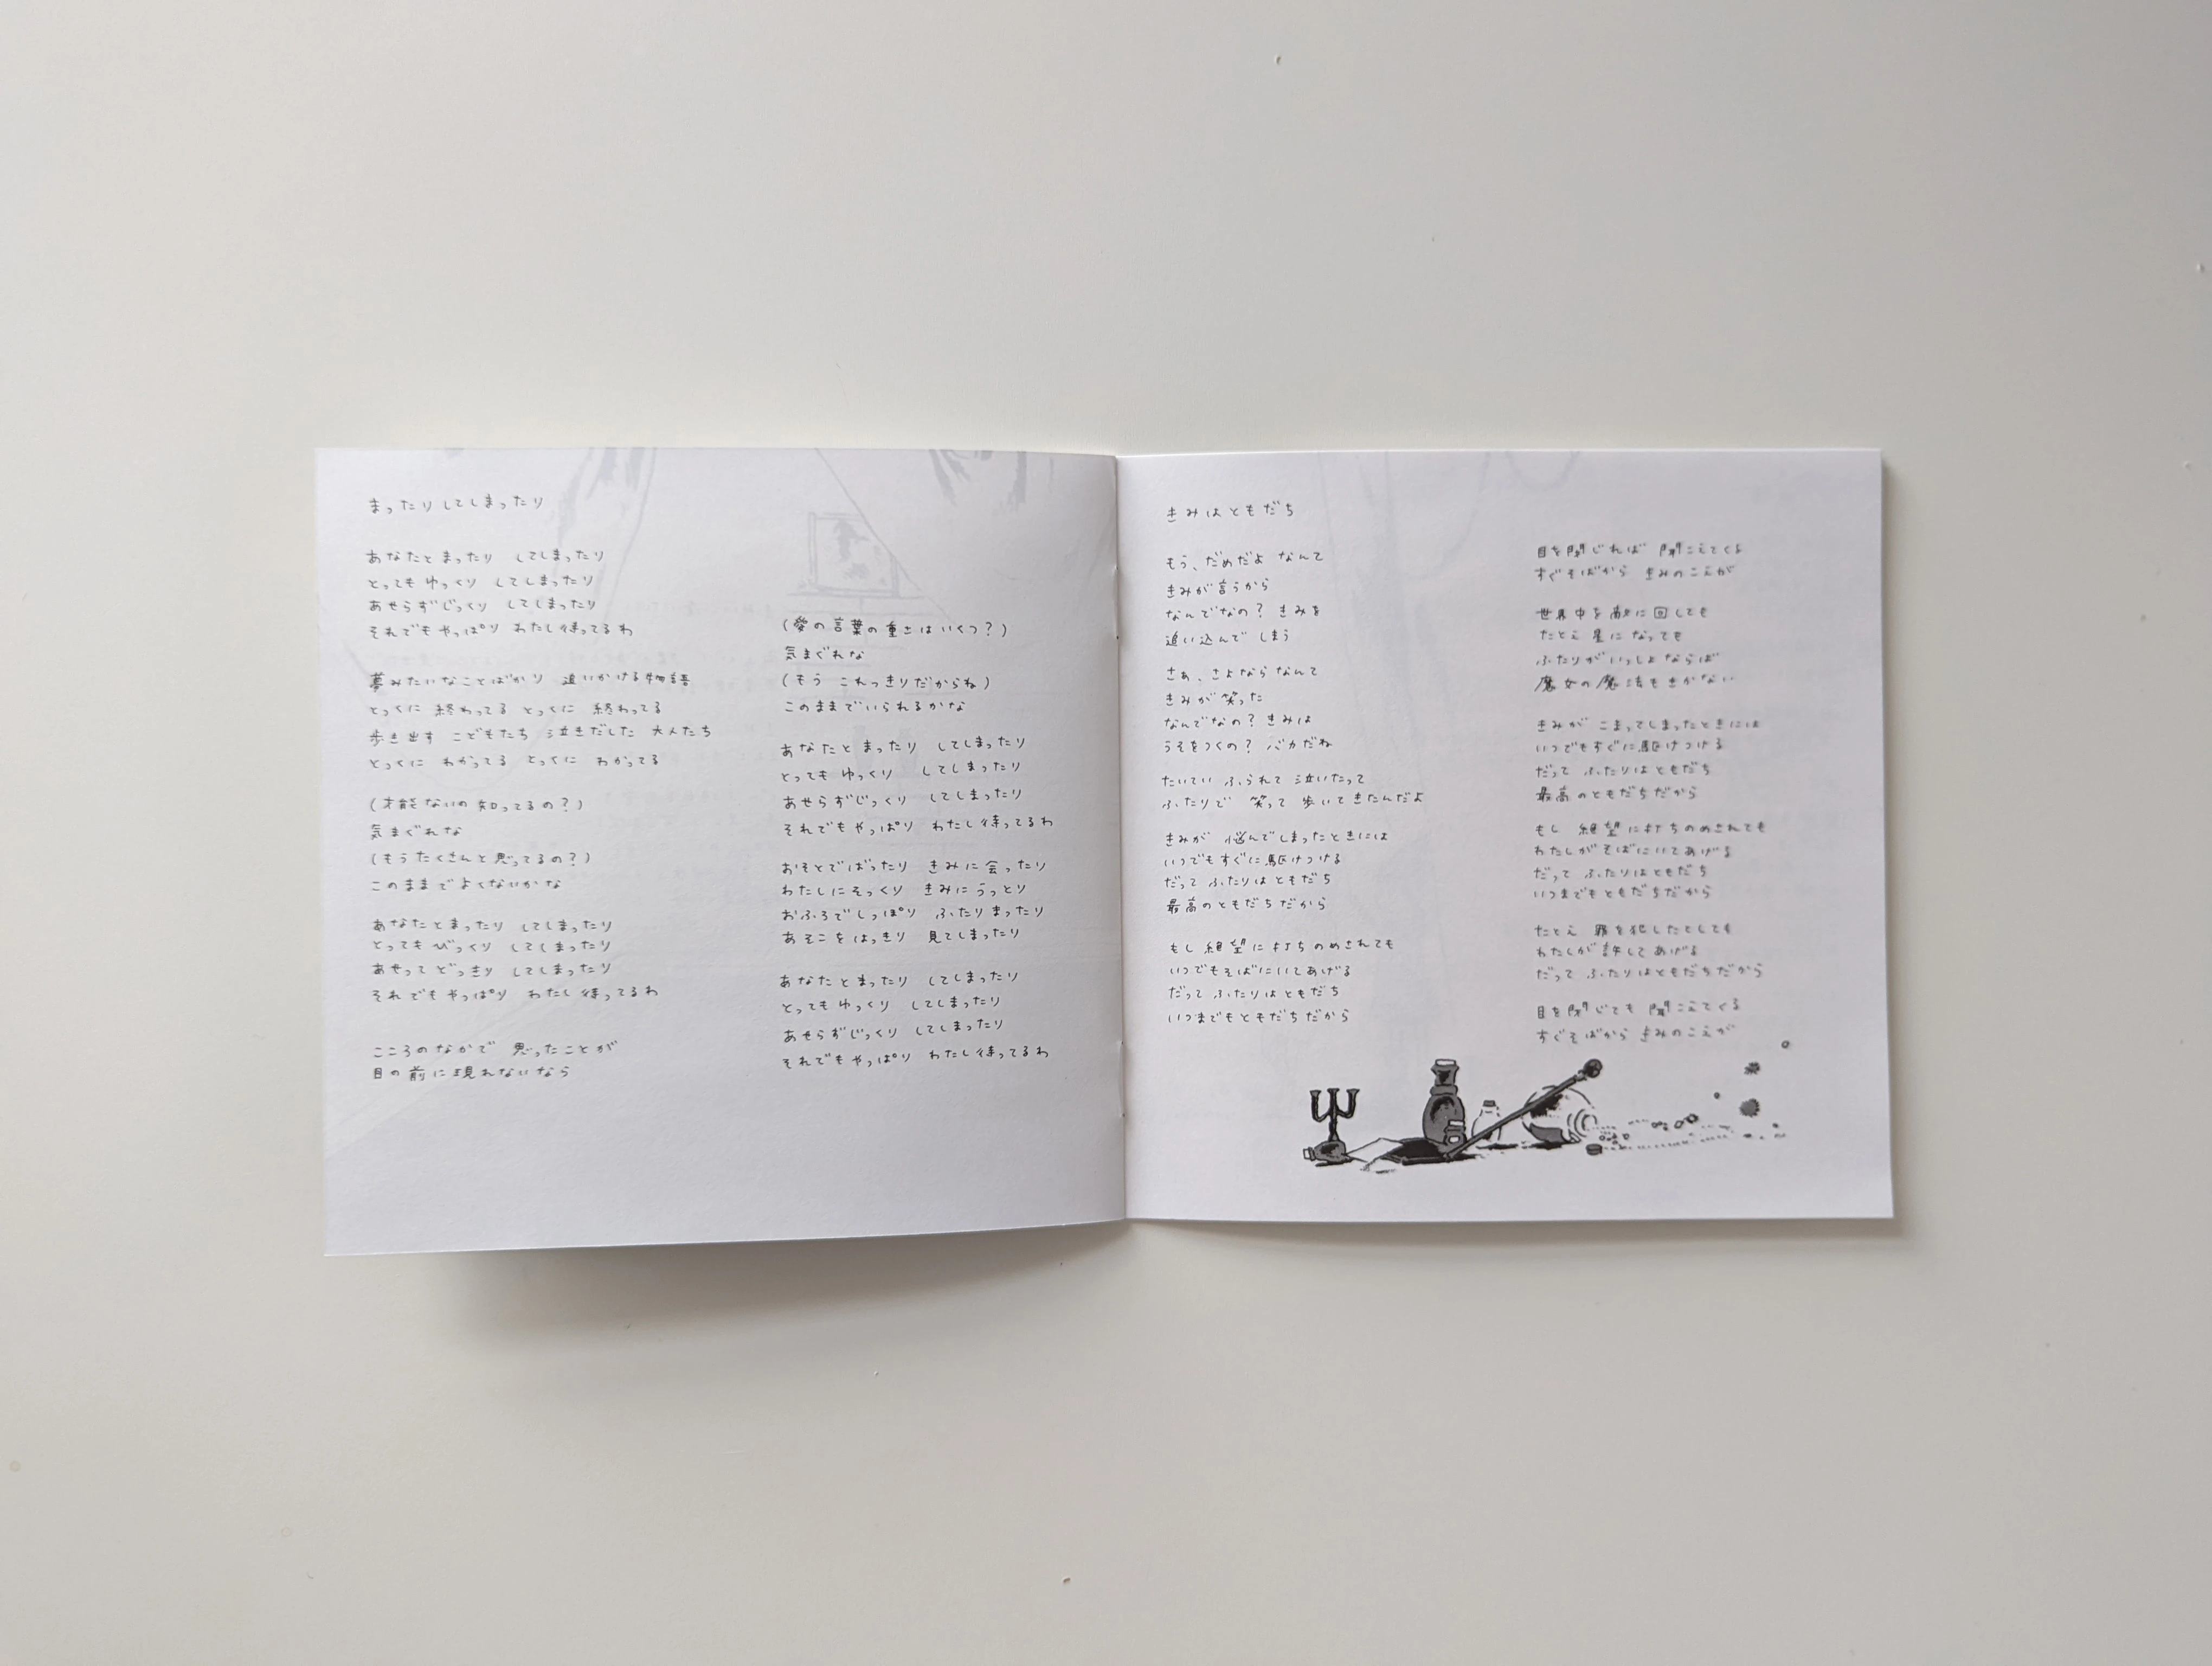 まったりしてしまったり
あなたとまったり　してしまったり
とってもゆっくり　してしまったり
あせらずじっくり　してしまったり
それでもやっぱり　わたし待ってるわ
夢みたいなことばかり　追いかける物語
とっくに　終わってる　とっくに　終わってる
歩き出す　こどもたち　泣きだした　大人たち
とっくに　わかってる　とっくに　わかってる
(才能ないの知ってるの？)
気まぐれな
(もうたくさんと思ってるの？)
このままでよくないかな
あなたとまったり　してしまったり
とってもびっくり　してしまったり
あせってどっきり　してしまったり
それでもやっぱり　わたし待ってるわ
こころのなかで　思ったことが
目の前に現れないなら
(愛の言葉の重さはいくつ？)
気まぐれな
(もう　これっきりだからね)
このままでいられるかな
あなたとまったり　してしまったり
とってもゆっくり　してしまったり
あせらずじっくり　してしまったり
それでもやっぱり　わたし待ってるわ
おそとでばったり　きみに会ったり
わたしにそっくり　きみにうっとり
おふろでしっぽり　ふたりまったり
あそこをはっきり　見てしまったり
あなたとまったり　してしまったり
とってもゆっくり　してしまったり
あせらずじっくり　してしまったり
それでもやっぱり　わたし待ってるわ
きみはともだち
もう、だめだよ　なんて
きみが言うから
なんでなの？　きみを
追い込んで　しまう
さぁ、さよならなんて
きみが笑った
なんでなの？　きみは
うそをつくの？　バカだね
たいてい　ふられて　泣いたって
ふたりで　笑って　歩いてきたんだよ
きみが　悩んでしまったときには
いつでもすぐに駆けつける
だって　ふたりはともだち
最高のともだちだから
もし　絶望に打ちのめされても
いつでもそばにいてあげる
だって　ふたりはともだち
いつまでもともだちだから
目を閉じれば　聞こえてくる
すぐそばから　きみのこえが
世界中を敵に回しても
たとえ　星に　なっても
ふたりがいっしょならば
魔女の魔法もきかない
きみが　こまってしまったときには
いつでもすぐに駆けつける
だって　ふたりはともだち
最高のともだちだから
もし　絶望に打ちのめされても
わたしがそばにいてあげる
だって　ふたりはともだち
いつまでもともだちだから
たとえ　罪を犯したとしても
わたしが許してあげる
だって　ふたりはともだちだから
目を閉じても　聞こえてくる
すぐそばから　きみのこえが